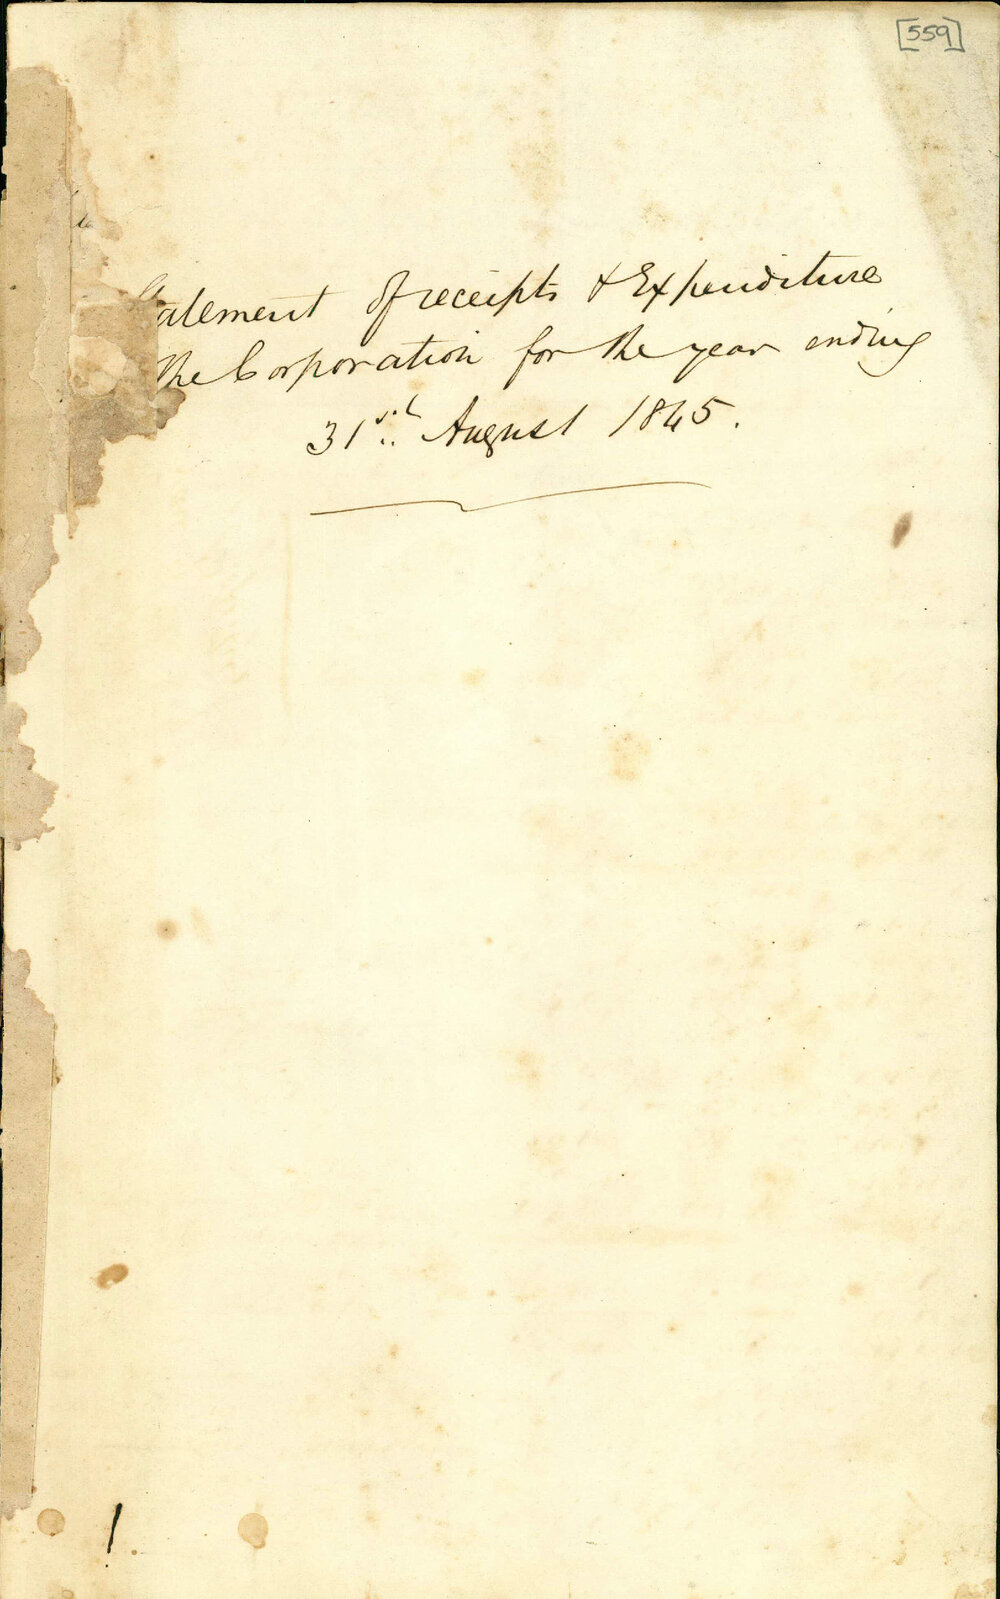 [559]
Statement of receipts & Expenditure
the Corporation for the year ending
31st August 1845.
1.